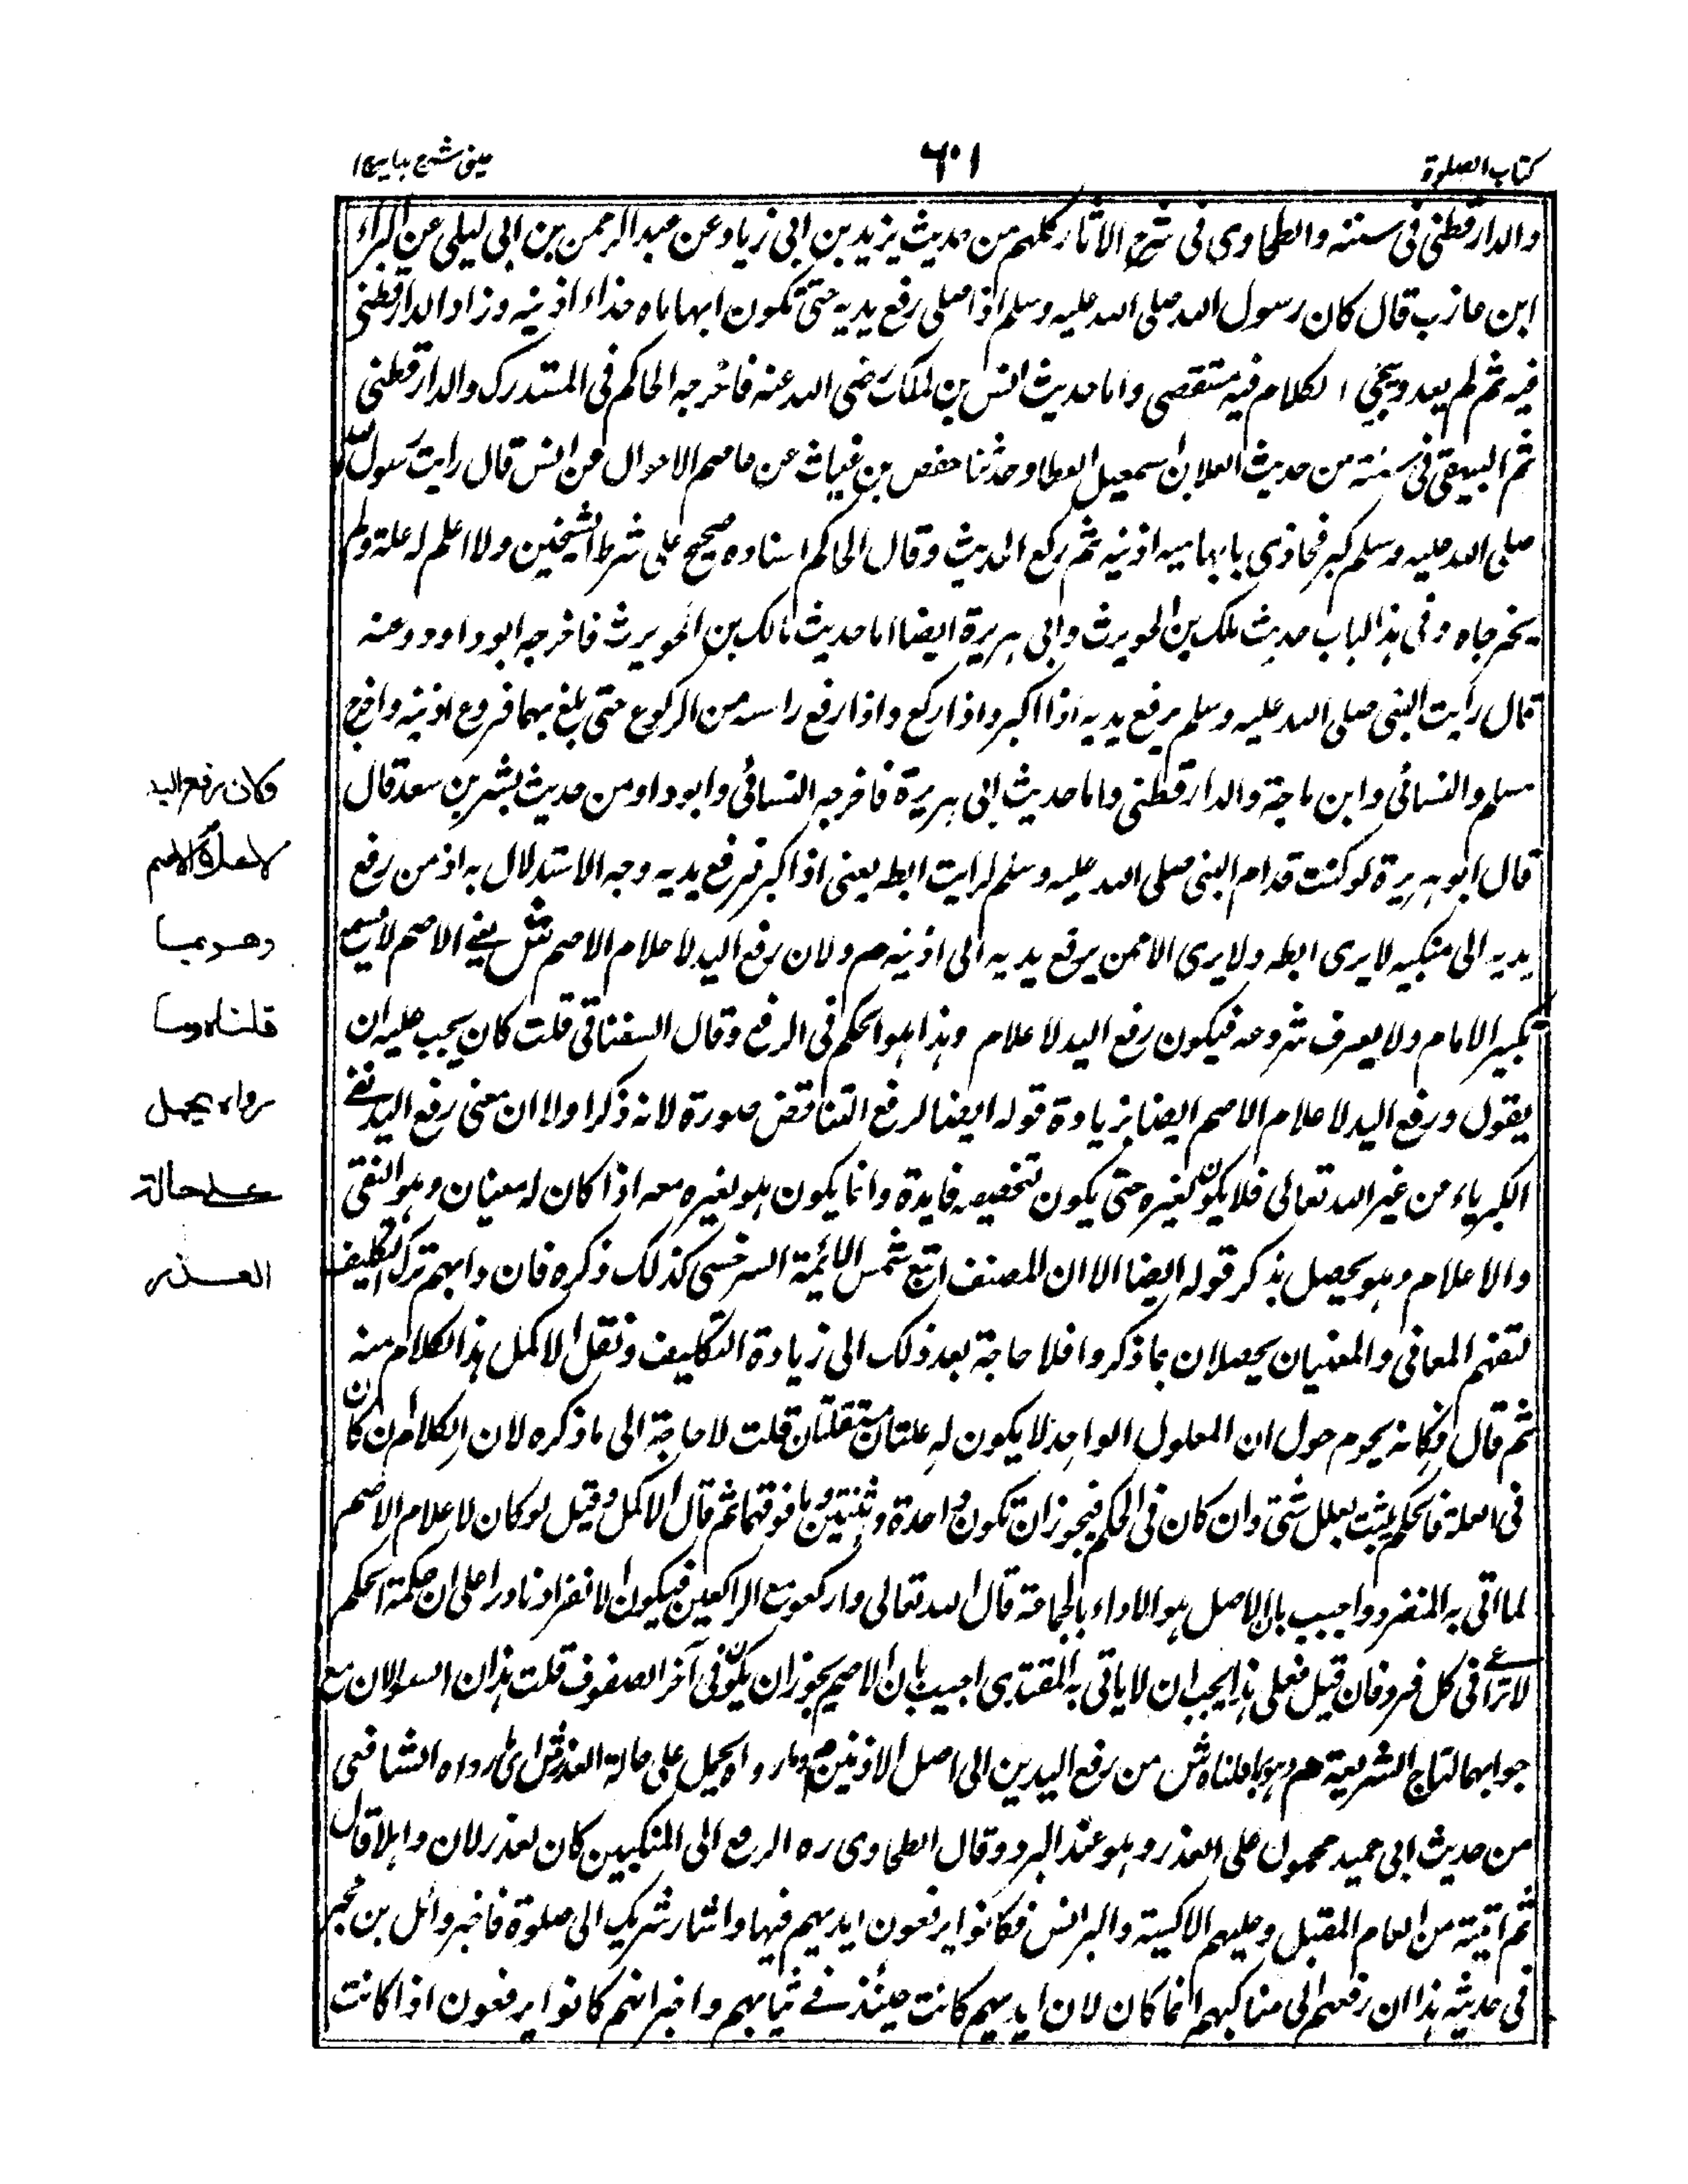 كتاب الصلوة
٦٠١
عينى شرح هدايه ج ١
والدارقطنى فى سننه والطحاوى فى شرح الآثار كلهم من حديث يزيد بن ابى زياد عن عبد الرحمن بن ابى ليلى عن البراء
ابن عازب قال كان رسول الله صلى الله عليه وسلم اذا صلى رفع يديه حتى تكون ابهاماه حذاء اذنيه وزاد الدارقطنى
فيه ثم لم يعد ويجئ الكلام فيه مستقصى واما حديث انس بن ملك رضى الله عنه فاخرجه الحاكم فى المستدرك والدارقطنى
ثم البيهقى فى سننه من حديث العلا بن اسمعيل العطار حدثنا حفص بن غياث عن عاصم الاحوال عن انس قال رايت رسول الله
صلى الله عليه وسلم كبر فحاذى بابهاميه اذنيه ثم ركع الحديث وقال الحاكم اسناده صحيح على شرط الشيخين ولا اعلم له علة ولم
يخرجاه وفى هذا الباب حديث ملك بن الحويرث وابى هريرة ايضا اما حديث مالك بن الحويرث فاخرجه ابو داود وعنه
قال رأيت النبى صلى الله عليه وسلم يرفع يديه اذا اكبر واذا ركع واذا رفع راسه من الركوع حتى بلغ بهما فروع اذنيه واخرج
مسلم والنسائى وابن ماجة والدارقطنى واما حديث ابى هريرة فاخرجه النسائى وابو داود من حديث بشر بن سعد قال
قال ابو هريرة لو كنت قدام النبى صلى الله عليه وسلم لرايت ابطه يعنى اذا كبر فرفع يديه وجه الاستدلال به اذ من رفع
يديه الى منكبيه لا يرى ابطه ولا يرى الا ممن يرفع يديه الى اذنيه م ولان رفع اليد لاعلام الاصم ش يعنے الاصم لا يسمع
تكبير الامام ولا يعرف شروعه فيكون رفع اليد لاعلام وهذا هو الحكم فى الرفع وقال السغناقى قلت كان يجب عليه ان
يقول ورفع اليد لاعلام الاصم ايضا بزيادة قوله ايضا لرفع التناقض صورة لانه ذكر اولا ان معنى رفع اليد نفے
الكبرياء من غير الله تعالى فلا يكون لغيره حتى يكون تخصيصه فايدة وانما يكون هو لغيره معه اذا كان له معنيان وهو النفى
والاعلام وهو يحصل بذكر قوله ايضا الا ان المصنف اتبع شمس الائمة السرخسى كذلك ذكره فان دابهم ترك التكليف
لتفهم المعانى والمعنيان يحصلان بما ذكروا فلا حاجة بعد ذلك الى زيادة التكليف ونقل الاكمل هذا الكلام منه
ثم قال فكانه يحوم حول ان المعلول الواحد لا يكون له علتان مستقلتان قلت لا حاجة الى ما ذكره لان الكلام ان كان
فى العلة فالحكم يثبت بعلل شتى وان كان فى الحكم فيجوز ان تكون واحدة وثنتين وما فوقهما ثم قال الاكمل وقيل لو كان لاعلام الاصم
لما اتى به المنفرد واجيب بان الاصل هو الاداء بالجماعة قال الله تعالى واركعوا مع الراكعين فيكون الانفراد نادرا على ان حكمة الحكم
لا تراعے فى كل فرد فان قيل فعلى هذا يجب ان لا ياتى به المقتدى اجيب بان الاصم يجوز ان يكون فى آخر الصفوف قلت هذان السوالان مع
جوابهما لتاج الشريعة م وهو بما قلناه ش من رفع اليدين الى اصل الاذنين م وما رواه يحمل على حالة العذر ش اى ما رواه الشافعى
من حديث ابى حميد محمول على العذر وهو عند البرد وقال الطحاوى ره الرفع الى المنكبين كان لعذر لان وايلا قال
ثم اتيته من العام المقبل وعليهم الاكسية والبرانس فكانوا يرفعون ايديهم فيها واشار شريك الى صلوة فاخبر وائل بن حجر
فى حديثه هذا ان رفعهم الى مناكبهم انما كان لان ايديهم كانت حينئذ فے ثيابهم واخبر انهم كانوا يرفعون اذا كانت
وكان رفع اليد
لاعلام الاصم
وهو بما
قلناه وما
رواه يحمل
على حالة
العذر